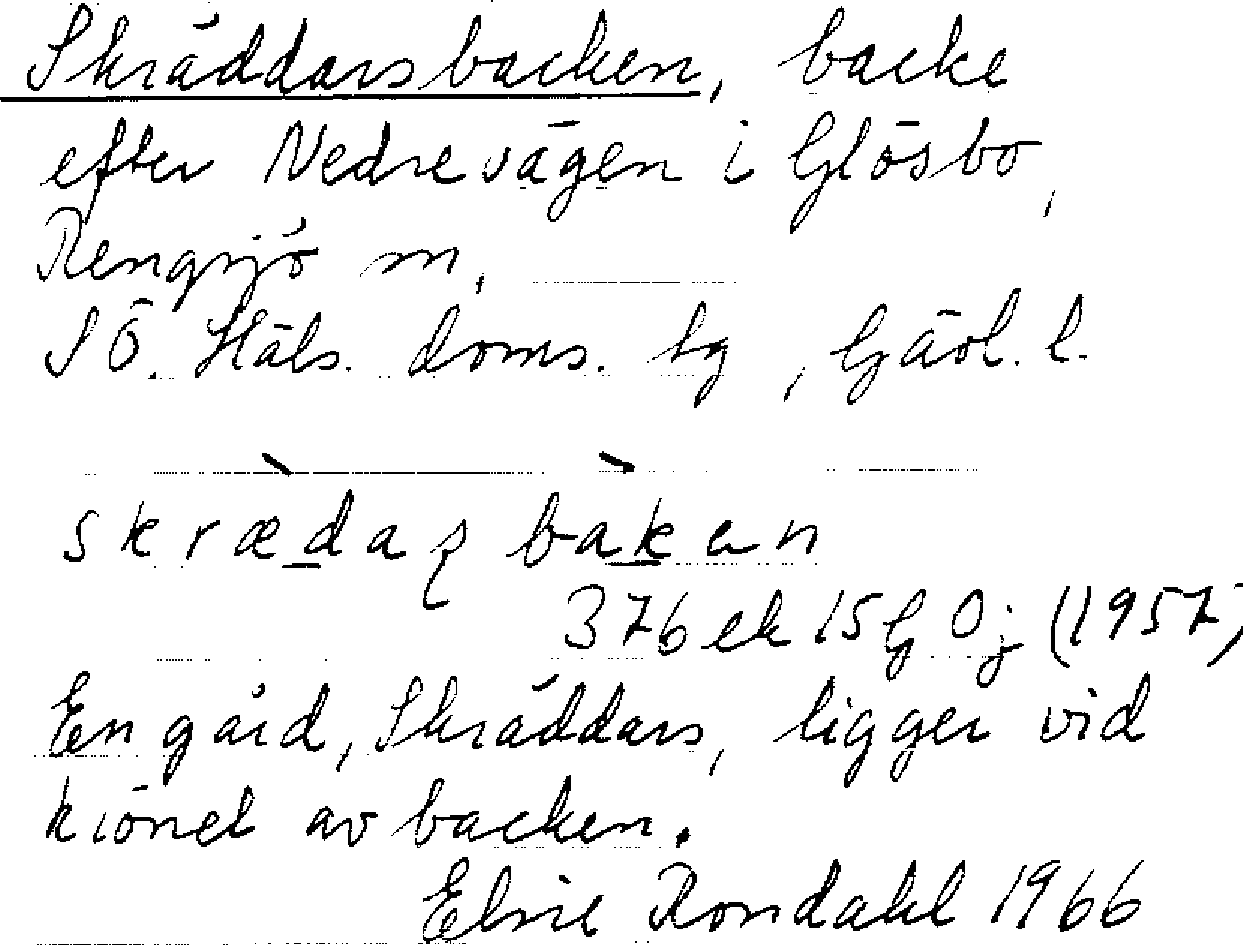 Skräddarsbacken, backe
efter Nedrevägen i Glösbo,
Rengsjö sn,
SÖ. Häls. doms. tg, Gävl. l.
skrædaʂ bakan
376 ek 15G 0j (1957)
En gård, Skräddars, ligger vid
krönet av backen.
Elsie Rondahl 1966